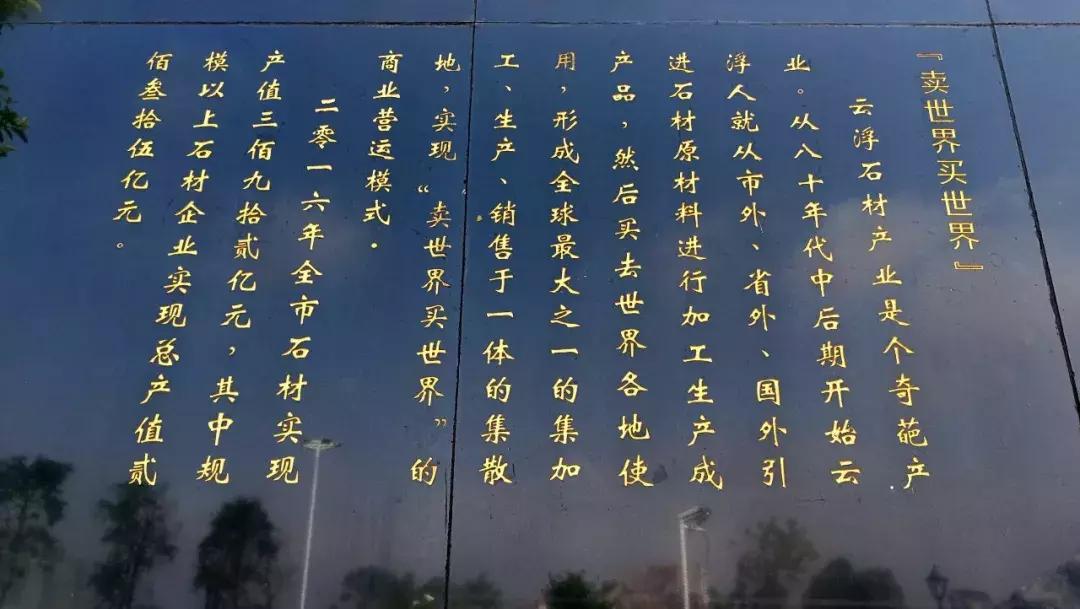 『卖世界买世界』
云浮石材产业是个奇葩产
业。从八十年代中后期开始云
浮人就从市外、省外、国外引
进石材原材料进行加工生产成
产品，然后买去世界各地使
用，形成全球最大之一的集加
工、生产、销售于一体的集散
地，实现“卖世界买世界”的
商业营运模式.
二零一六年全市石材实现
产值三佰九拾贰亿元，其中规
模以上石材企业实现总产值贰
佰叁拾伍亿元。